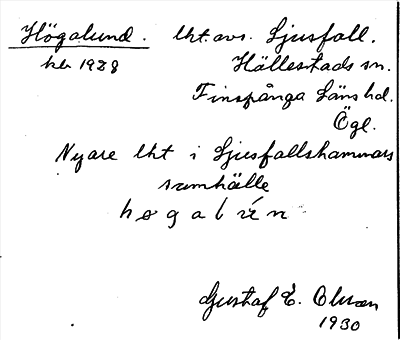 Högalund. lht. avs. Ljusfall.
1928 Hällestads sn.
Finspånga Läns hd.
Ögl.
Nyare lht i Ljusfallshammars
samhälle
Gustaf E. Olsson
1930